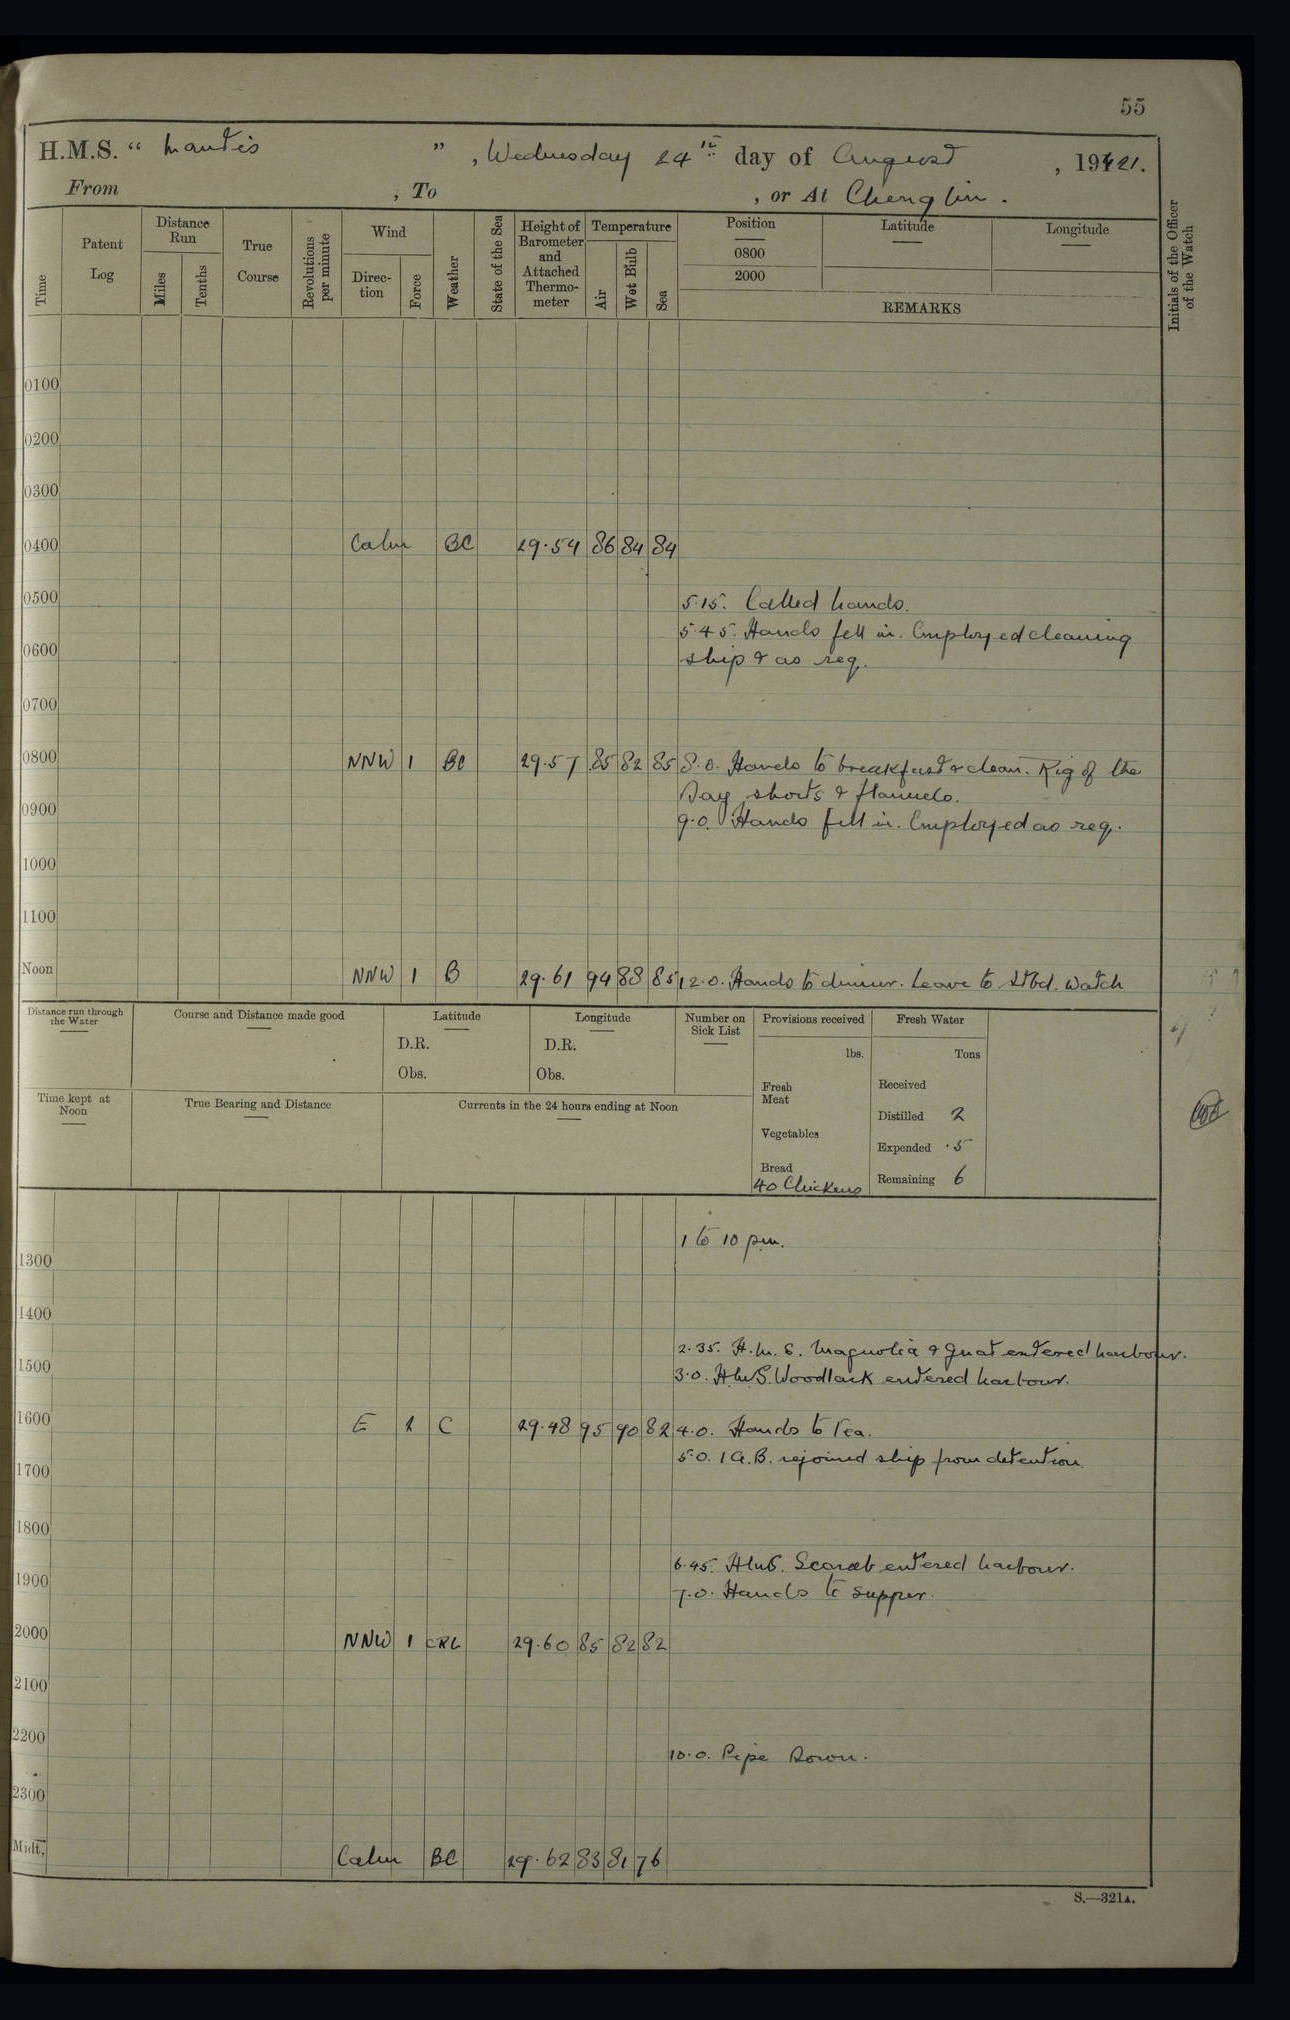 55
H.M.S. " Mantis " , Wednesday 24th day of August , 1921.
From , To , or At Chenglin.
Time
Patent Log
Distance Run
Miles
Tenths
True Course
Revolutions per minute
Wind
Direc-tion
Force
Weather
State of the Sea
Height of Barometer and Attached Thermo-meter
Temperature
Air
Wet Bulb
Sea
Position
0800
2000
Latitude
Longitude
REMARKS
Initials of the Officer of the Watch
0100
0200
0300
0400 Calm BC 29.54 86 84 84
0500 5.15. Called hands.
5.45. Hands fell in. Employed cleaning
0600 ship & as req.
0700
0800 NNW 1 BC 29.57 85 82 85 8.0. Hands to breakfast & clean. Rig of the
Day, shorts & flannels.
0900 9.0. Hands fell in. Employed as req.
1000
1100
Noon NNW 1 B 29.61 94 88 85 12.0. Hands to dinner. Leave to Stbd. Watch
Distance run through the Water
Course and Distance made good
Latitude
D.R.
Obs.
Longitude
D.R.
Obs.
Number on Sick List
Provisions received
lbs.
Fresh Meat
Vegetables
Bread
40 Chickens
Fresh Water
Tons
Received
Distilled 2
Expended .5
Remaining 6
Time kept at Noon
True Bearing and Distance
Currents in the 24 hours ending at Noon
1 to 10 pm.
1300
1400
2.35. H.M.S. Magnolia & Gnat entered harbour.
1500 3.0. HMS. Woodlark entered harbour.
1600 E 2 C 29.48 95 90 82 4.0. Hands to Tea.
5.0. 1 A.B. rejoined ship from detention.
1700
1800
6.45. HMS. Scarab entered harbour.
1900 7.0. Hands to supper.
2000 NNW 1 CRL 29.60 85 82 82
2100
2200 10.0. Pipe Down.
2300
Midt. Calm BC 29.62 83 81 76
S.—321A.